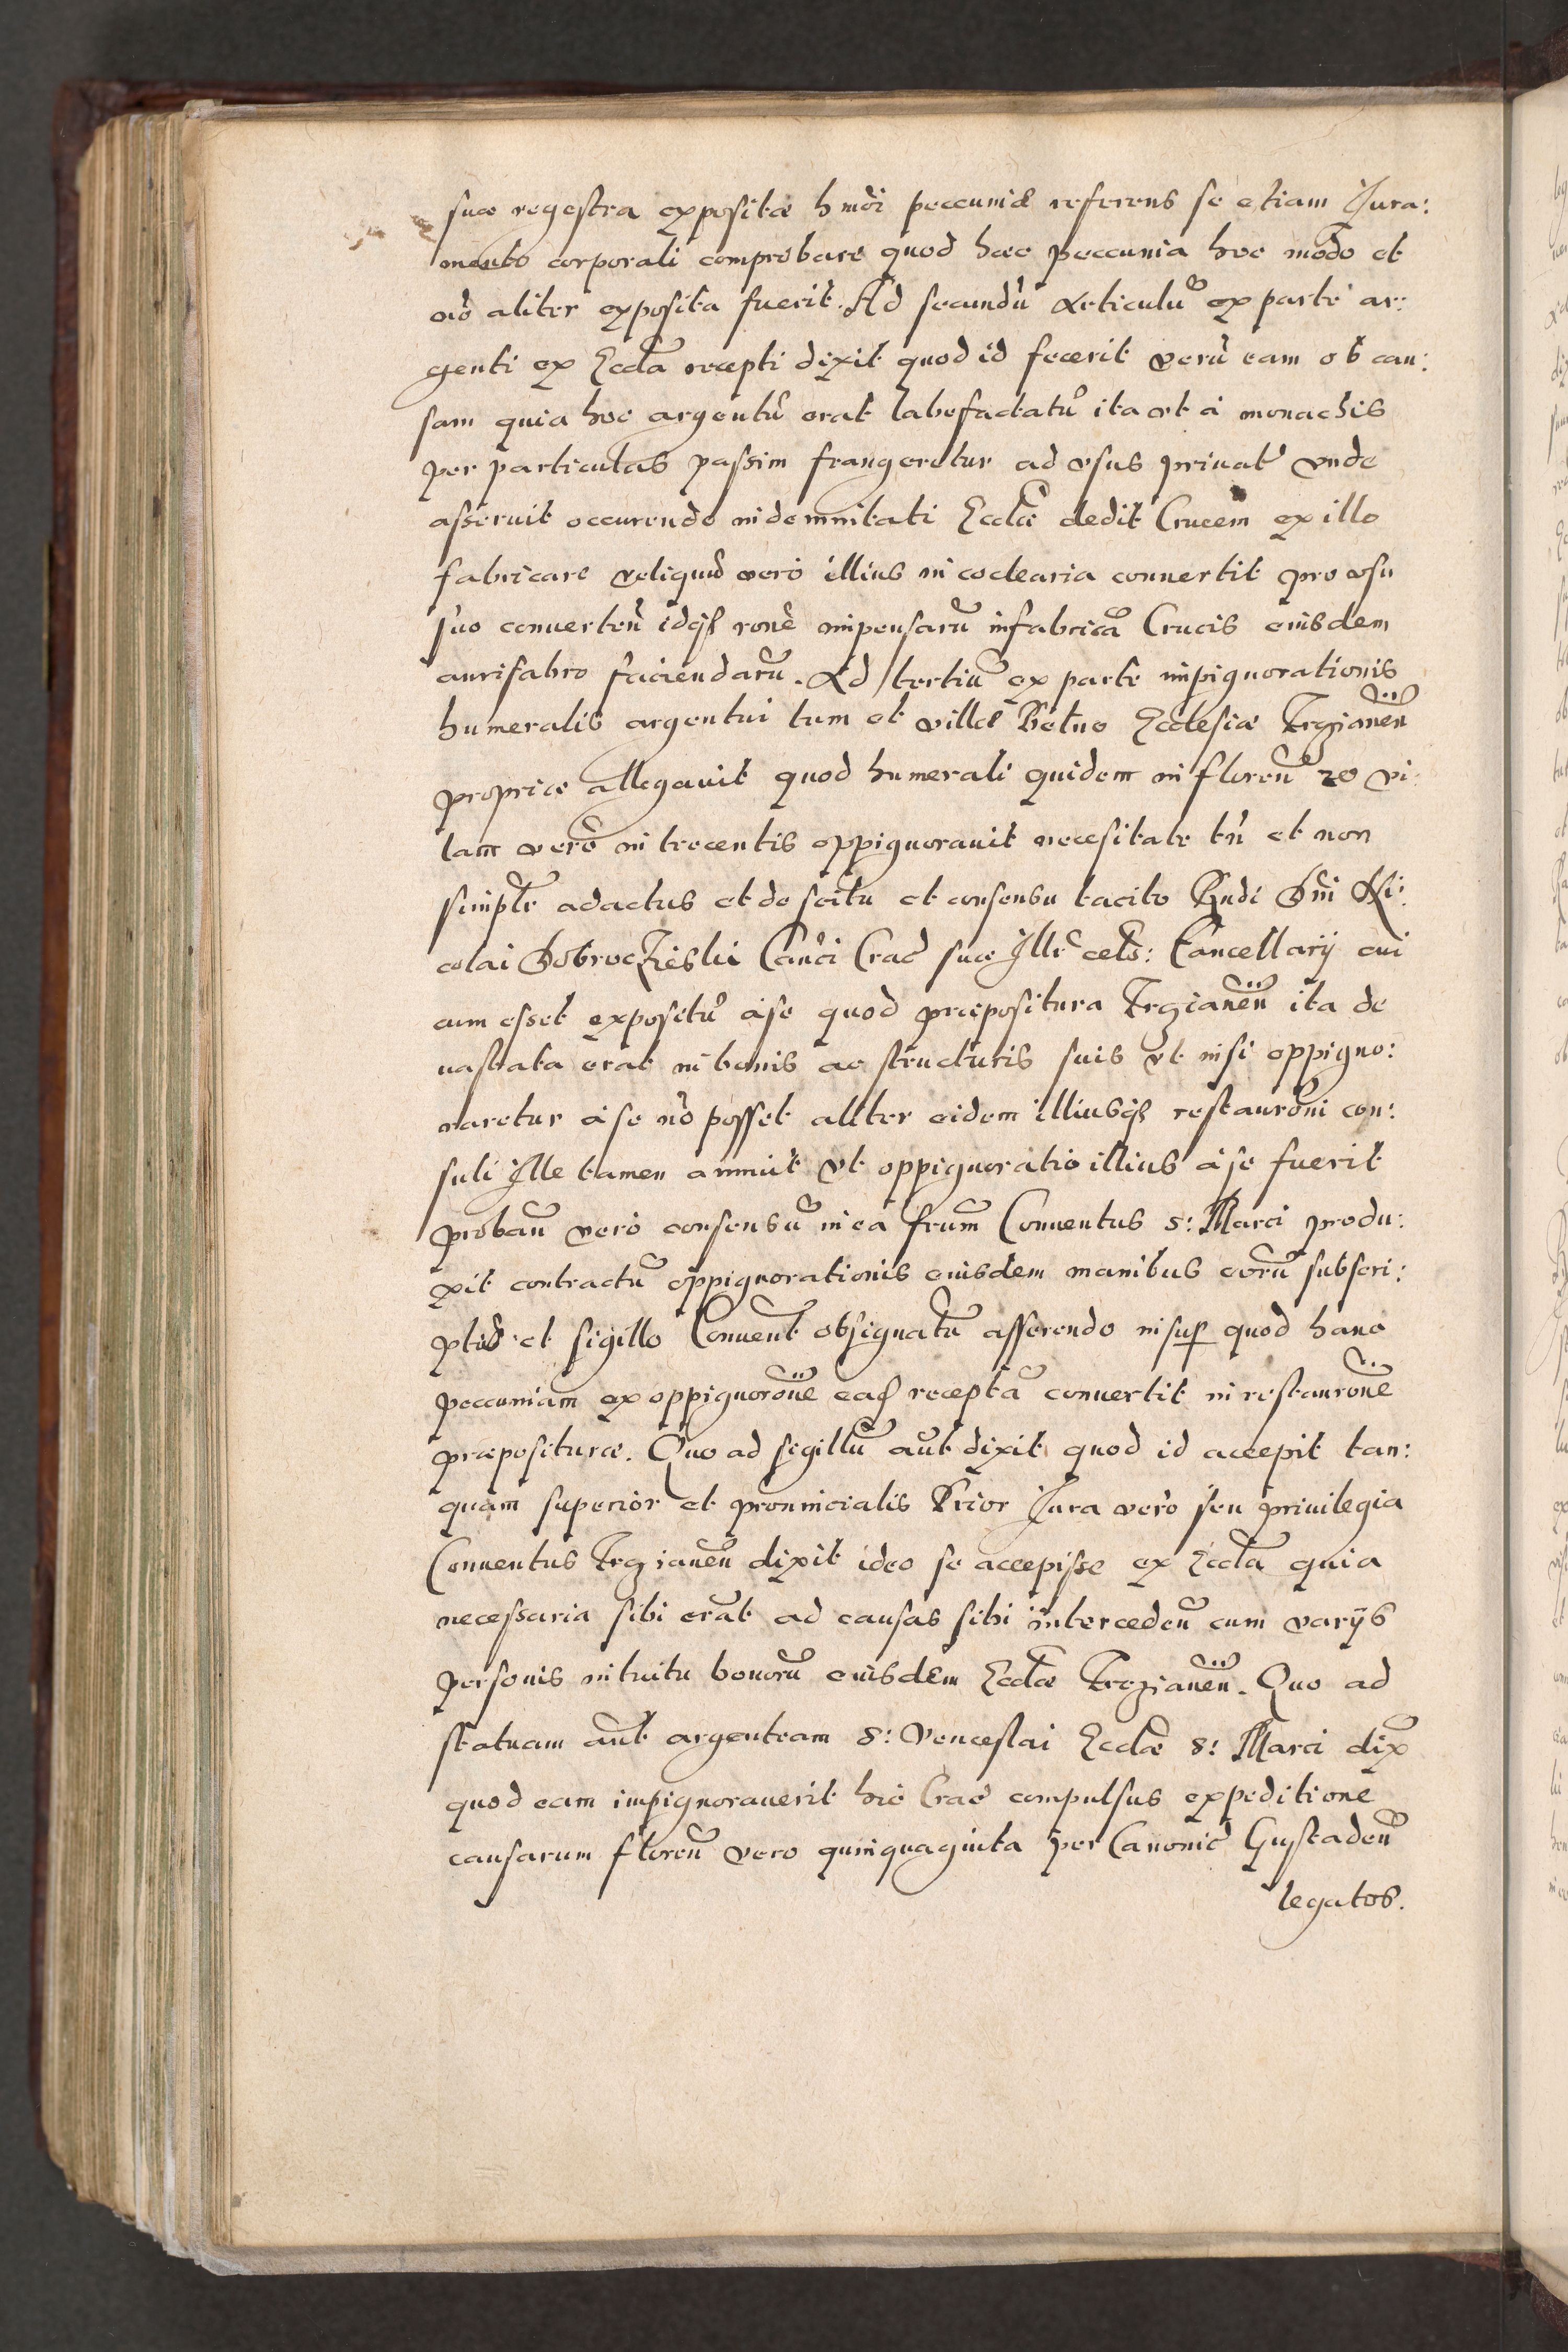 suæ regestra expositæ hmoi peccuniæ referens se etiam Jura:
mento corporali comprobare quod hæc peccunia hoc modo et
nō aliter exposita fuerit. Ad secundū Articulū ex parte ar:
genti ex Eccla recepti dixit quod id fecerit verū eam ob cau:
sam quia hoc argentū erat labefactatū ita ut à monachis
per particulas passim frangeretur ad usus privat vnde
asseruit occurendo indemnitati Ecclæ dedit Crucem ex illo
fabricare reliquū vero illius in coclearia convertit pro usu
suo converten idq rone impensarū in fabricā Crucis eiusdem
aurifabro faciendarū. Ad tertiū ex parte impignorationis
humeralis argentei tum et villæ Ecclesiæ Trzcianen
propriæ allegavit quod humerali quidem in floren 20 vi
lam vero in trecentis oppignoravit necesitate tn et non
simplr adactus et de scitu et consensu tacito Rndi Dni Ni:
colai Dobroczieski Canci Crac suæ Illr cels: Cancellarij cui
cum esset expositū à se quod præpositura Trzcianen ita de
vastata erat in bonis ac structuris suis vt nisi oppigno:
raretur à se nō posset aliter eidem illiusq restauroni con:
suli Ille tamen annuit vt oppignoratio illius à se fuerit
proban vero consensū in ea frum Conventus S: Marci produ:
xit contractū oppignorationis eiusdem manibus eorū subscri:
ptū et sigillo Convent obsignatū asserendo insup quod hanc
peccuniam ex oppignorone ea receptā convertit in restaurone
præposituræ. Quo ad sigillū aut dixit quod id accepit tan:
quam superior et provincialis Prior Jura vero seu privilegia
Conventus Trzcianen dixit ideo se accepisse ex Eccla quia
necessaria sibi erāt ad causas sibi interceden cum varijs
personis intuitu bonorū eiusdem Ecclæ Trzcianen. Quo ad
statuam aut argenteam S: Venceslai Ecclæ S: Marci dix
quod eam impignoraverit hic Crac compulsus expeditione
causarum floren vero quinquaginta per Canonic Gnystaden
legatos.